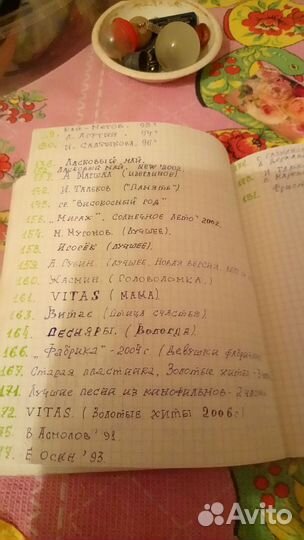 Кай-Метов. 93г
А. Априн. 94г
130. И. Салтыкова. 96г
136. Ласковый май,
Ласковый май, new 2002
137. А. Маршал (избранное)
142. И. Тальков ("Память")
145. гр. "Високосный год"
153. "Мираж". Солнечное лето" 2002
154. Н. Мурсков. (Лучшее).
158. Игорёк (Лучшее).
159. А. Губин. (Лучшее. Новая версия.
160. Жасмин (Головоломка.)
161. VITAS (Мама).
163. Витас (Птица счастья).
164. Песняры. (Вологда).
166. "Фабрика"-2004 г (Девушки фабричные
167. Старая пластинка, Золотые хиты-
171. Лучшие песни из кинофильмов-2 части
172. VITAS. (Золотые хиты 2006г)
75. В Асмолов '91
77. Е Осин '93.
Avito